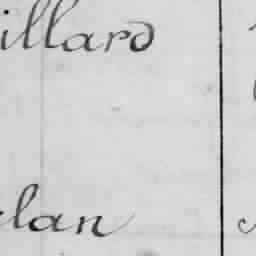 illard
elan